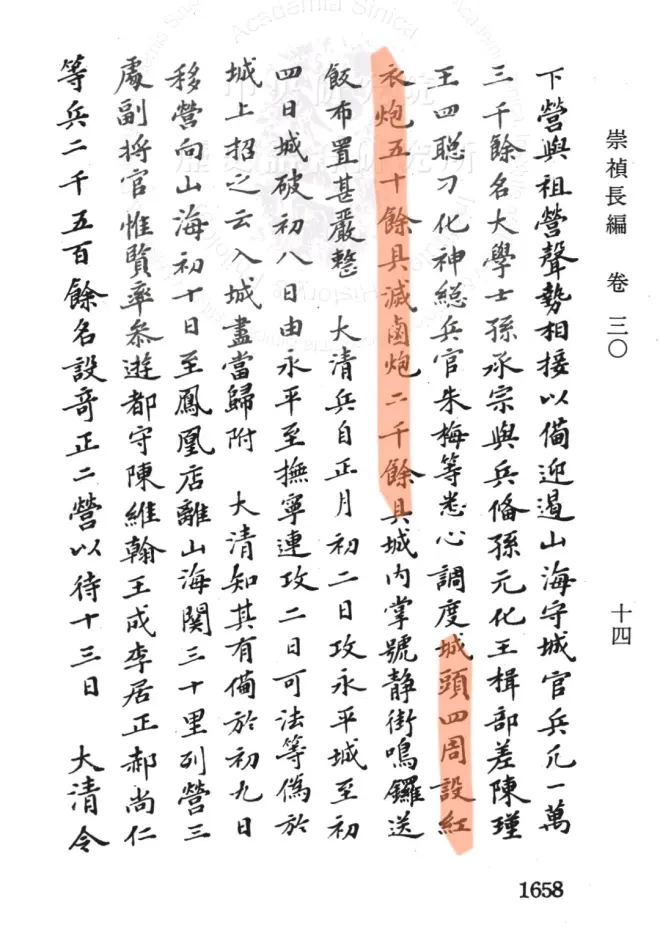 崇禎長編 卷三〇 十四
下營與祖營聲勢相接以備迎遏山海守城官兵凡一萬
三千餘名大學士孫承宗與兵備孫元化王楫部差陳瑾
王四聰刁化神總兵官朱梅等悉心調度城頭四周設紅
衣炮五十餘具滅鹵炮二千餘具城內掌號靜街鳴鑼送
飯布置甚嚴整 大清兵自正月初二日攻永平城至初
四日城破初八日由永平至撫寧連攻二日可法等偽於
城上招之云入城盡當歸附 大清知其有備於初九日
移營向山海初十日至鳳凰店離山海関三十里列營三
處副將官惟賢率叅遊都守陳維翰王成李居正郝尚仁
等兵二千五百餘名設奇正二營以待十三日 大清令
1658
Academia Sinica